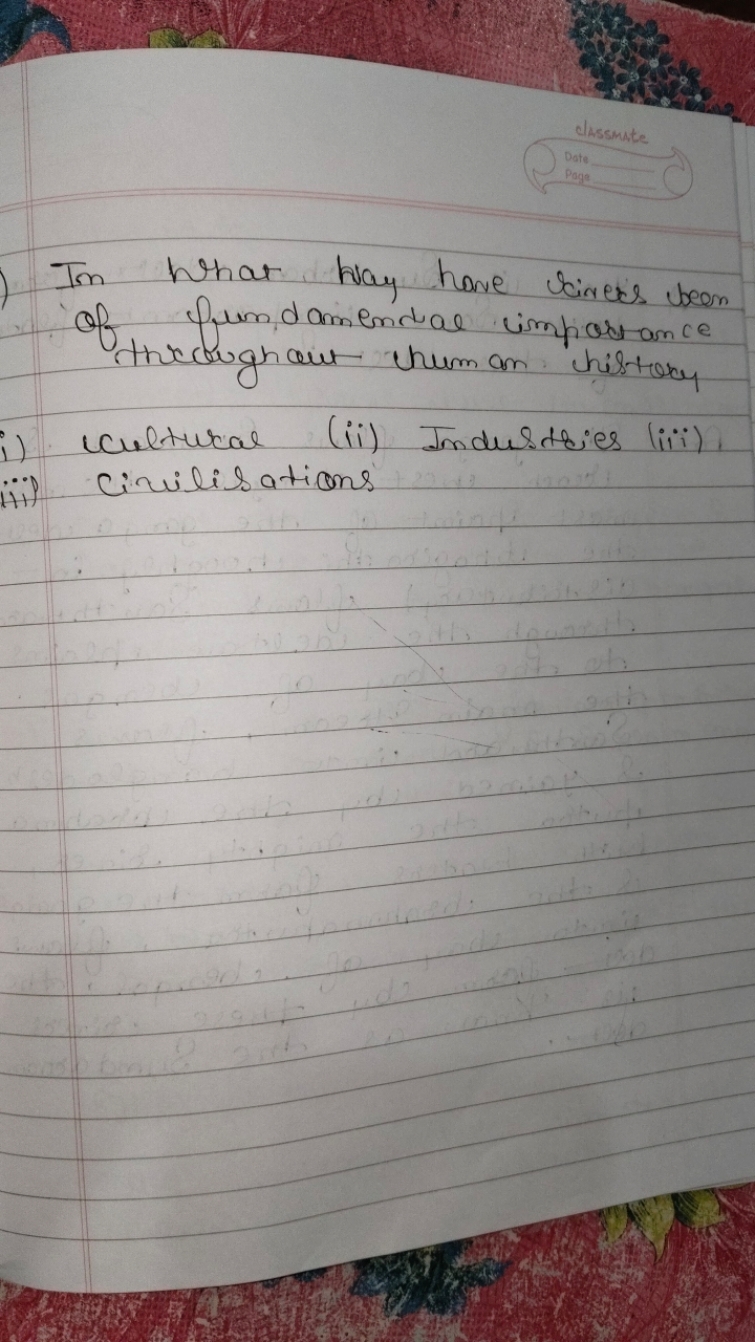 classmate
Date
Page
) In what way have rivers been
of fundamendal importance
throughout human history
i) cultural (ii) Industries (iii)
iii) civilisations